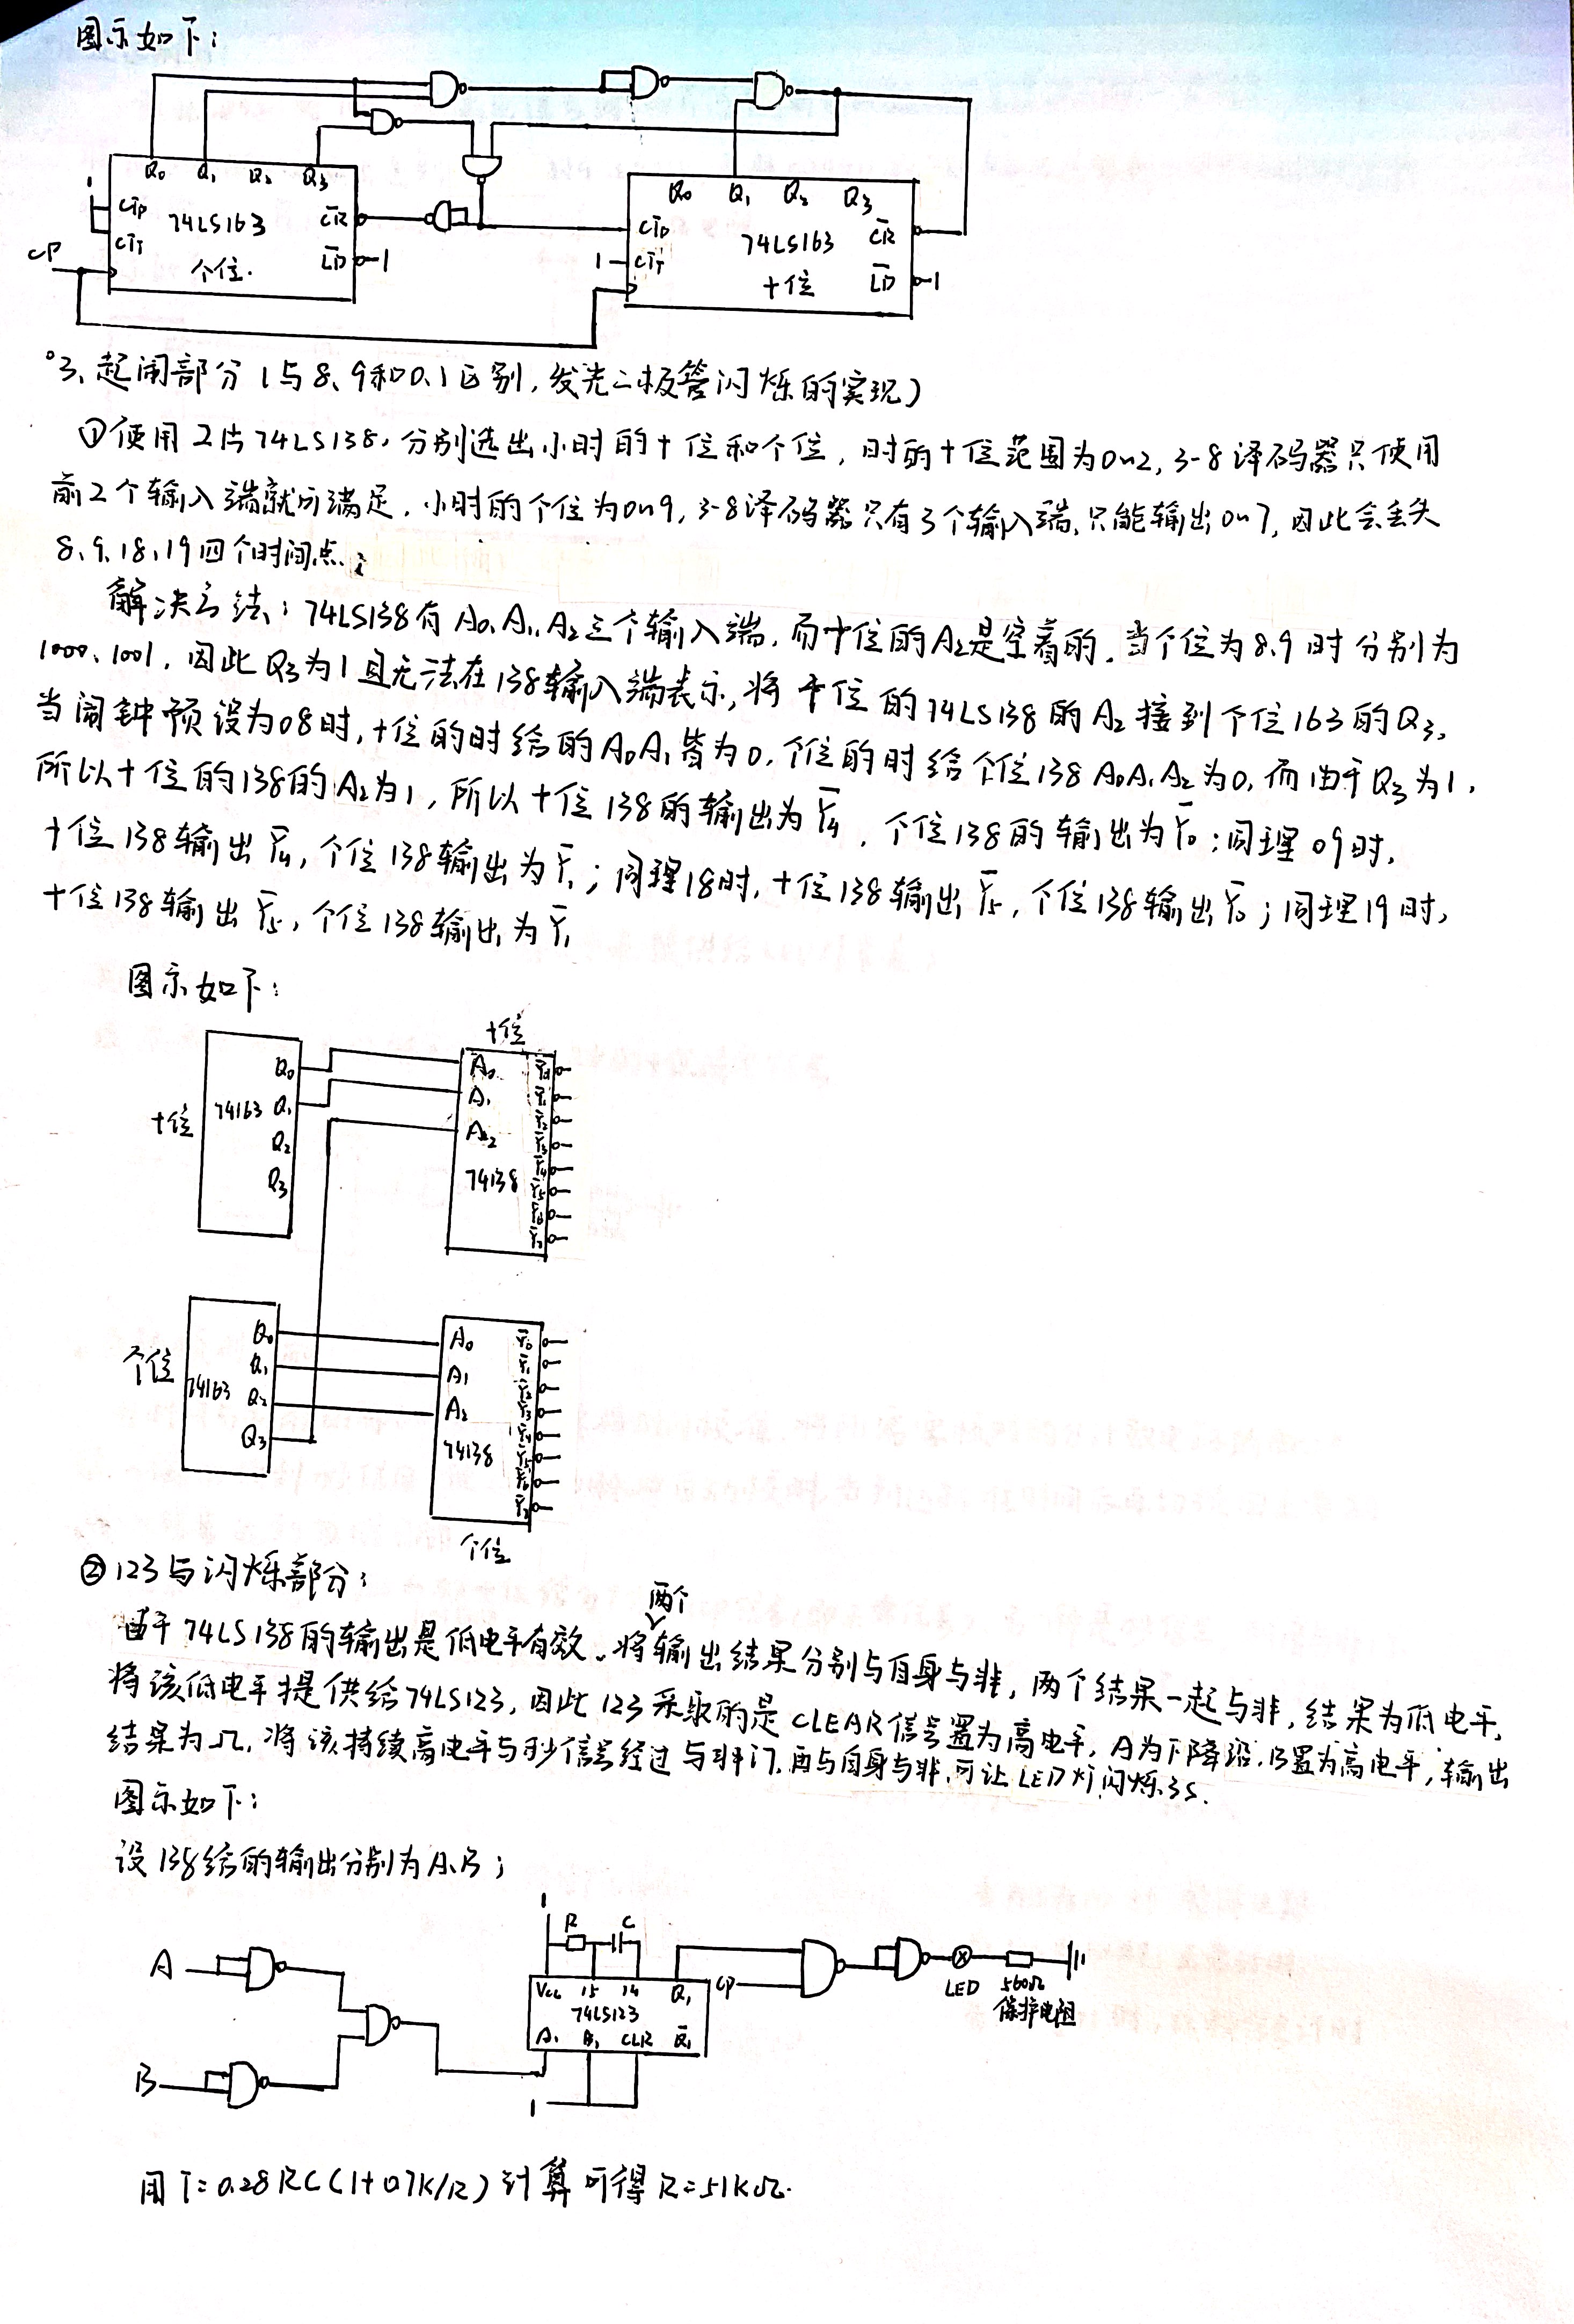 图示如下:
Q₀ Q₁ Q₂ Q₃
1
CTP
CTT
74LS163
个位.
C̅R̅
L̅D̅
1
CP
Q₀ Q₁ Q₂ Q₃
CTP
1 CTT
74LS163
十位
C̅R̅
L̅D̅
1
°3、起闹部分(与8、9和0、1区别,发光二极管闪烁的实现)
①使用2片74LS138,分别选出小时的十位和个位,时的十位范围为0~2,3-8译码器只使用
前2个输入端就可满足,小时的个位为0~9,3-8译码器只有3个输入端,只能输出0~7,因此会丢失
8、9、18、19四个时间点;
解决方法:74LS138有A₀、A₁、A₂三个输入端,而十位的A₂是空着的.当个位为8、9时分别为
1000、1001,因此Q₃为1且无法在138输入端表示,将十位的74LS138的A₂接到个位163的Q₃,
当闹钟预设为08时,十位的时给的A₀A₁皆为0,个位的时给个位138A₀A₁A₂为0,而由于Q₃为1,
所以十位的138的A₂为1,所以十位138的输出为Y̅₄,个位138的输出为Y̅₀;同理09时,
十位138输出Y̅₄,个位138输出为Y̅₁;同理18时,十位138输出Y̅₅,个位138输出Y̅₀;同理19时,
十位138输出Y̅₅,个位138输出为Y̅₁
图示如下:
十位
74163
Q₀
Q₁
Q₂
Q₃
十位
A₀
A₁
A₂
74138
Y̅₀
Y̅₁
Y̅₂
Y̅₃
Y̅₄
Y̅₅
Y̅₆
Y̅₇
个位
74163
Q₀
Q₁
Q₂
Q₃
A₀
A₁
A₂
74138
Y̅₀
Y̅₁
Y̅₂
Y̅₃
Y̅₄
Y̅₅
Y̅₆
Y̅₇
个位
②123与闪烁部分:
由于74LS138的输出是低电平有效.将两个输出结果分别与自身与非,两个结果一起与非,结果为低电平,
将该低电平提供给74LS123,因此123采取的是CLEAR信号置为高电平,A为下降沿,B置为高电平,输出
结果为⎍,将该持续高电平与秒信号经过与非门,再与自身与非,可让LED灯闪烁3s.
图示如下:
设138给的输出分别为A、B;
A
B
1
R C
Vcc 15 14 Q₁
74LS123
A₁ B₁ CLR Q̅₁
1
CP
LED
560Ω
保护电阻
用T=0.28RC(1+0.7K/R)计算可得R=51KΩ.